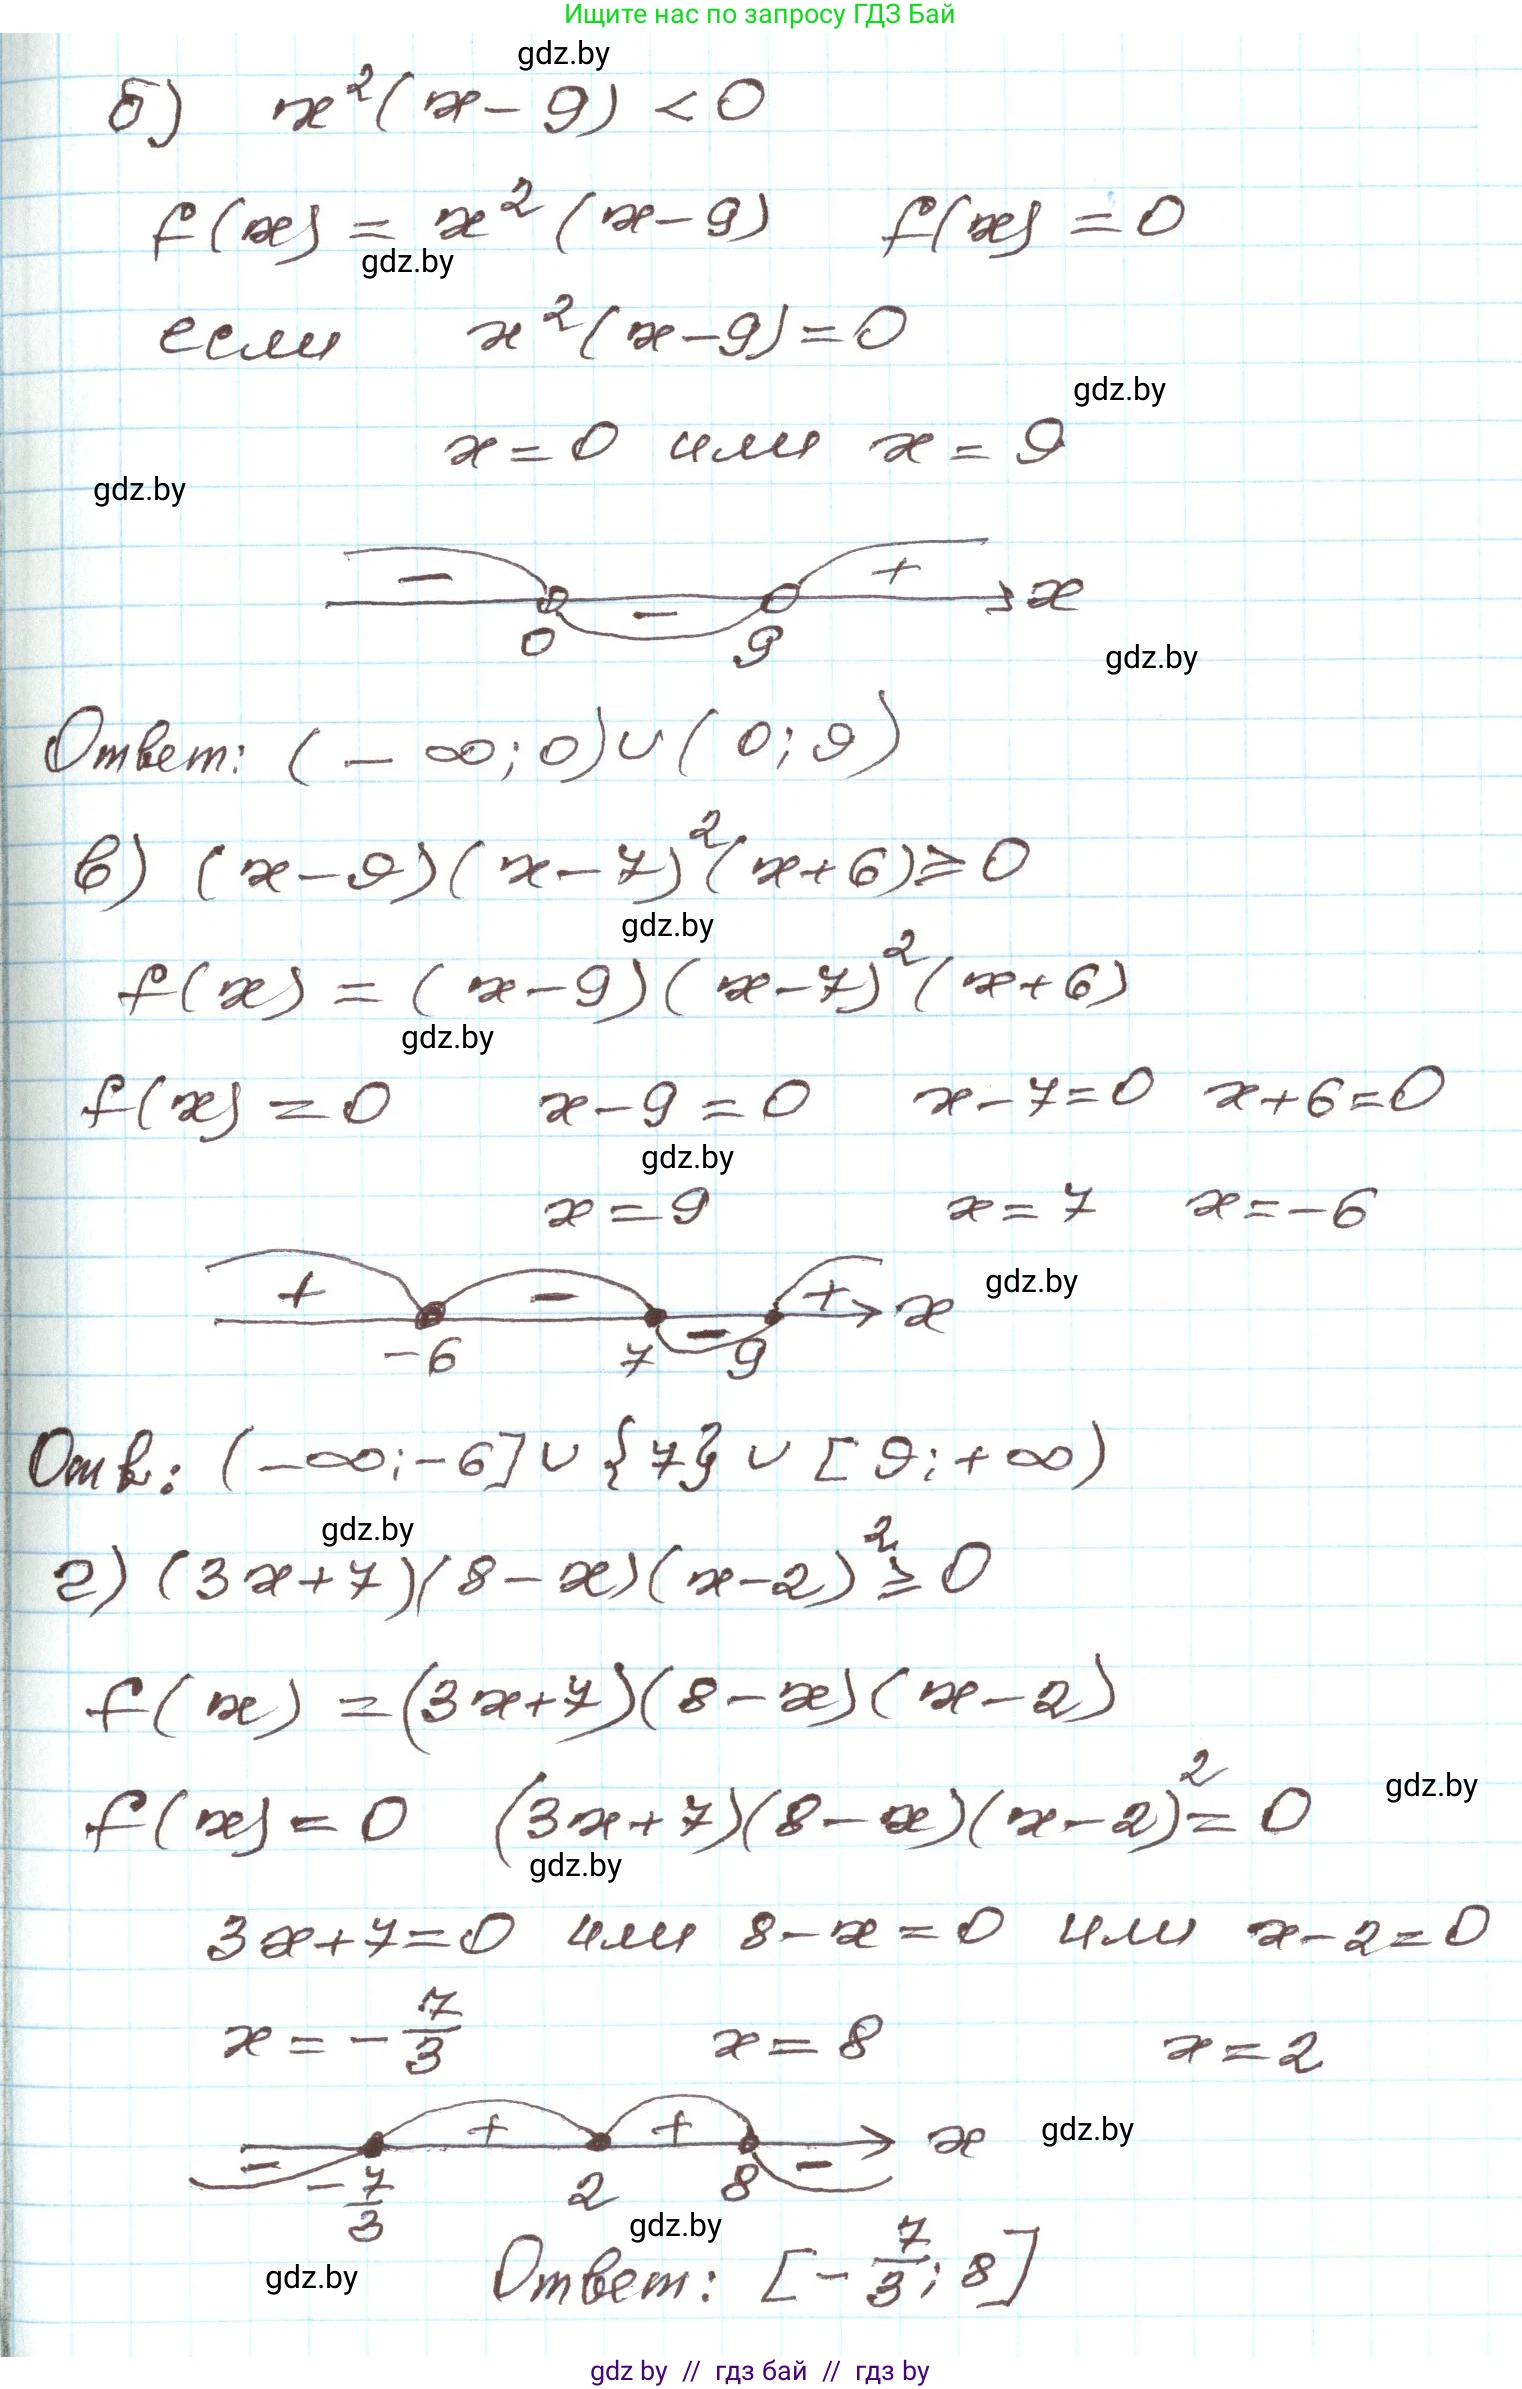 Ищите нас по запросу ГДЗ Бай
gdz.by
б) x²(x-9) < 0
f(x) = x²(x-9) f(x) = 0
gdz.by
если x²(x-9) = 0
gdz.by
x = 0 или x = 9
gdz.by
− − + x
0 9
gdz.by
Ответ: (-∞; 0) ∪ (0; 9)
в) (x-9)(x-7)²(x+6) ≥ 0
gdz.by
f(x) = (x-9)(x-7)²(x+6)
gdz.by
f(x) = 0 x-9 = 0 x-7=0 x+6=0
gdz.by
x = 9 x = 7 x = -6
gdz.by
+ − − + x
-6 7 9
Отв: (-∞; -6] ∪ {7} ∪ [9; +∞)
gdz.by
г) (3x+7)(8-x)(x-2)² ≥ 0
f(x) = (3x+7)(8-x)(x-2)
gdz.by
f(x) = 0 (3x+7)(8-x)(x-2)² = 0
gdz.by
3x+7=0 или 8-x=0 или x-2=0
x = -7/3 x = 8 x = 2
− + + − x
gdz.by
-7/3 2 8
gdz.by
gdz.by
Ответ: [-7/3; 8]
gdz by // гдз бай // гдз by